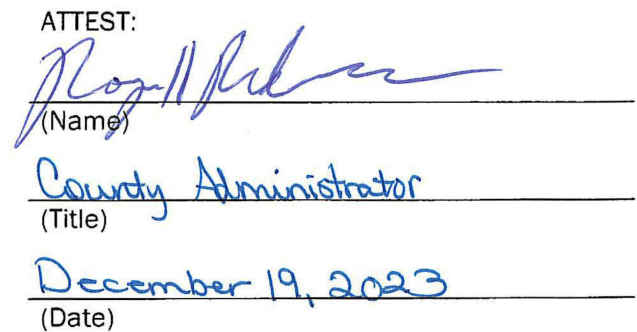 ATTEST:
(Name)
County Administrator
(Title)
December 19, 2023
(Date)